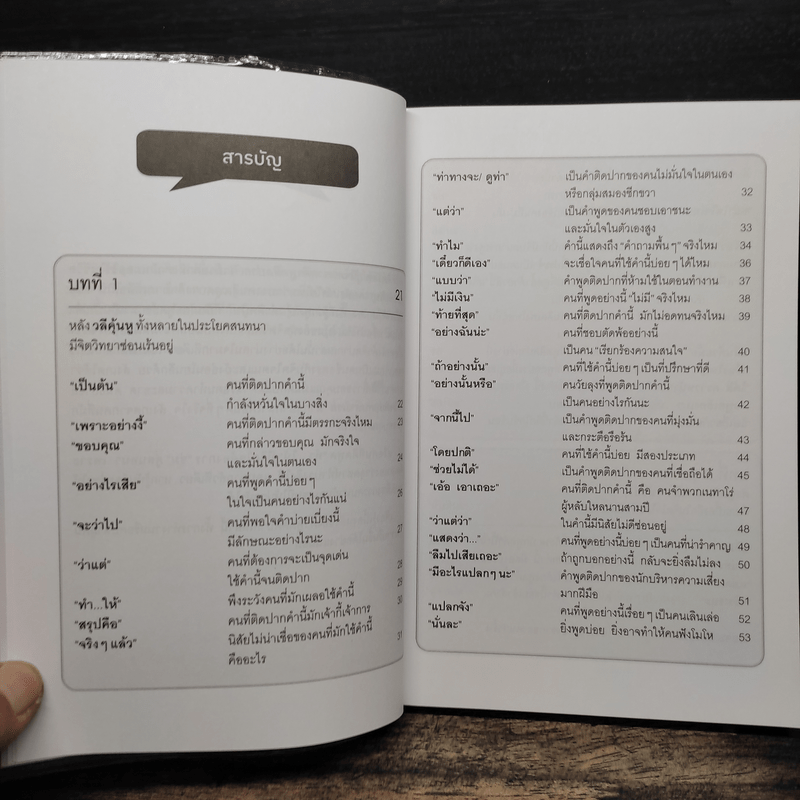 สารบัญ
บทที่ 1 21
หลัง วลีคุ้นหู ทั้งหลายในประโยคสนทนา
มีจิตวิทยาซ่อนเร้นอยู่
"เป็นต้น" คนที่ติดปากคำนี้
กำลังหวั่นใจในบางสิ่ง 22
"เพราะอย่างงี้" คนที่ติดปากคำนี้มีตรรกะจริงไหม 23
"ขอบคุณ" คนที่กล่าวขอบคุณ มักจริงใจ
และมั่นใจในตนเอง 24
"อย่างไรเสีย" คนที่พูดคำนี้บ่อยๆ
ในใจเป็นคนอย่างไรกันแน่ 26
"จะว่าไป" คนที่พอใจคำบ่ายเบี่ยงนี้
มีลักษณะอย่างไรนะ 27
"ว่าแต่" คนที่ต้องการจะเป็นจุดเด่น 28
ใช้คำนี้จนติดปาก 29
"ทำ...ให้" พึงระวังคนที่มักเผลอใช้คำนี้ 30
"สรุปคือ" คนที่ติดปากคำนี้มักเจ้ากี้เจ้าการ
"จริงๆ แล้ว" นิสัยไม่น่าเชื่อของคนที่มักใช้คำนี้ 31
คืออะไร
"ท่าทางจะ/ ดูท่า" เป็นคำติดปากของคนไม่มั่นใจในตนเอง
หรือกลุ่มสมองซีกขวา 32
"แต่ว่า" เป็นคำพูดของคนชอบเอาชนะ
และมั่นใจในตัวเองสูง 33
"ทำไม" คำนี้แสดงถึง "คำถามพื้นๆ" จริงไหม 34
"เดี๋ยวก็ดีเอง" จะเชื่อใจคนที่ใช้คำนี้บ่อยๆ ได้ไหม 36
"แบบว่า" คำพูดติดปากที่ห้ามใช้ในตอนทำงาน 37
"ไม่มีเงิน" คนที่พูดอย่างนี้ "ไม่มี" จริงไหม 38
"ท้ายที่สุด" คนที่ติดปากคำนี้ มักไม่อดทนจริงไหม 39
"อย่างฉันน่ะ" คนที่ชอบตัดพ้ออย่างนี้
เป็นคน "เรียกร้องความสนใจ" 40
"ถ้าอย่างนั้น" คนที่ใช้คำนี้บ่อยๆ เป็นที่ปรึกษาที่ดี 41
"อย่างนั้นหรือ" คนวัยลุงที่พูดติดปากคำนี้
เป็นคนอย่างไรกันนะ 42
"จากนี้ไป" เป็นคำพูดติดปากของคนที่มุ่งมั่น
และกระตือรือร้น 43
"โดยปกติ" คนที่ใช้คำนี้บ่อย มีสองประเภท 44
"ช่วยไม่ได้" เป็นคำพูดติดปากของคนที่เชื่อถือได้ 45
"เอ้อ เอาเถอะ" คนที่ติดปากคำนี้ คือ คนจำพวกเนทาโร่
ผู้หลับใหลนานสามปี 47
"ว่าแต่ว่า" ในคำนี้มีนิสัยไม่ดีซ่อนอยู่ 48
"แสดงว่า..." คนที่พูดอย่างนี้บ่อยๆ เป็นคนที่น่ารำคาญ 49
"ลืมไปเสียเถอะ" ถ้าถูกบอกอย่างนี้ กลับจะยิ่งลืมไม่ลง 50
"มีอะไรแปลกๆ นะ" คำพูดติดปากของนักบริหารความเสี่ยง
มากฝีมือ 51
"แปลกจัง" คนที่พูดอย่างนี้เรื่อยๆ เป็นคนเลินเล่อ 52
"นั่นละ" ยิ่งพูดบ่อย ยิ่งอาจทำให้คนฟังโมโห 53